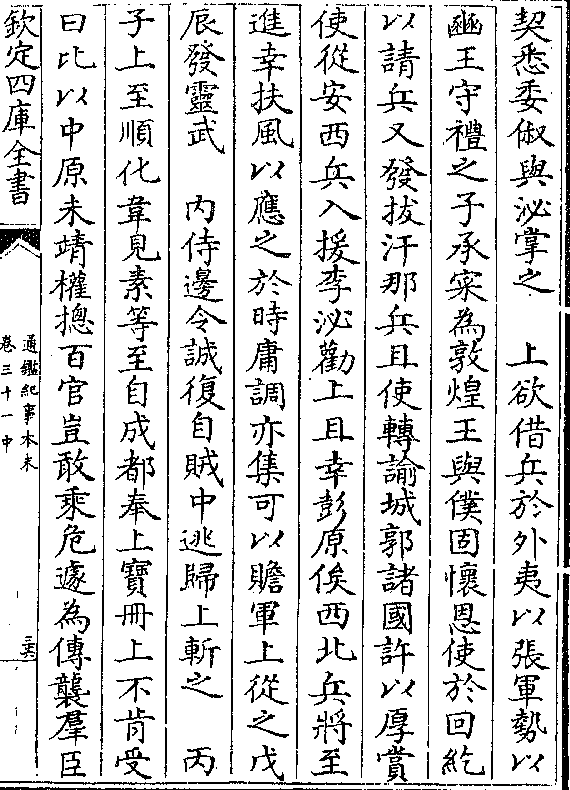 契悉委俶與泌掌之　上欲借兵於外夷以張軍勢以
豳王守禮之子承寀為敦煌王與僕固懷恩使於回紇
以請兵又發拔汗那兵且使轉諭城郭諸國許以厚賞
使從安西兵入援李泌勸上且幸彭原俟西北兵將至
進幸扶風以應之於時庸調亦集可以贍軍上從之戊
辰發靈武　內侍邊令誠復自賊中逃歸上斬之　丙
子上至順化韋見素等至自成都奉上寶冊上不肯受
曰比以中原未靖權摠百官豈敢乘危遽為傳襲羣臣
欽定四庫全書
通鑑紀事本末
卷三十一中